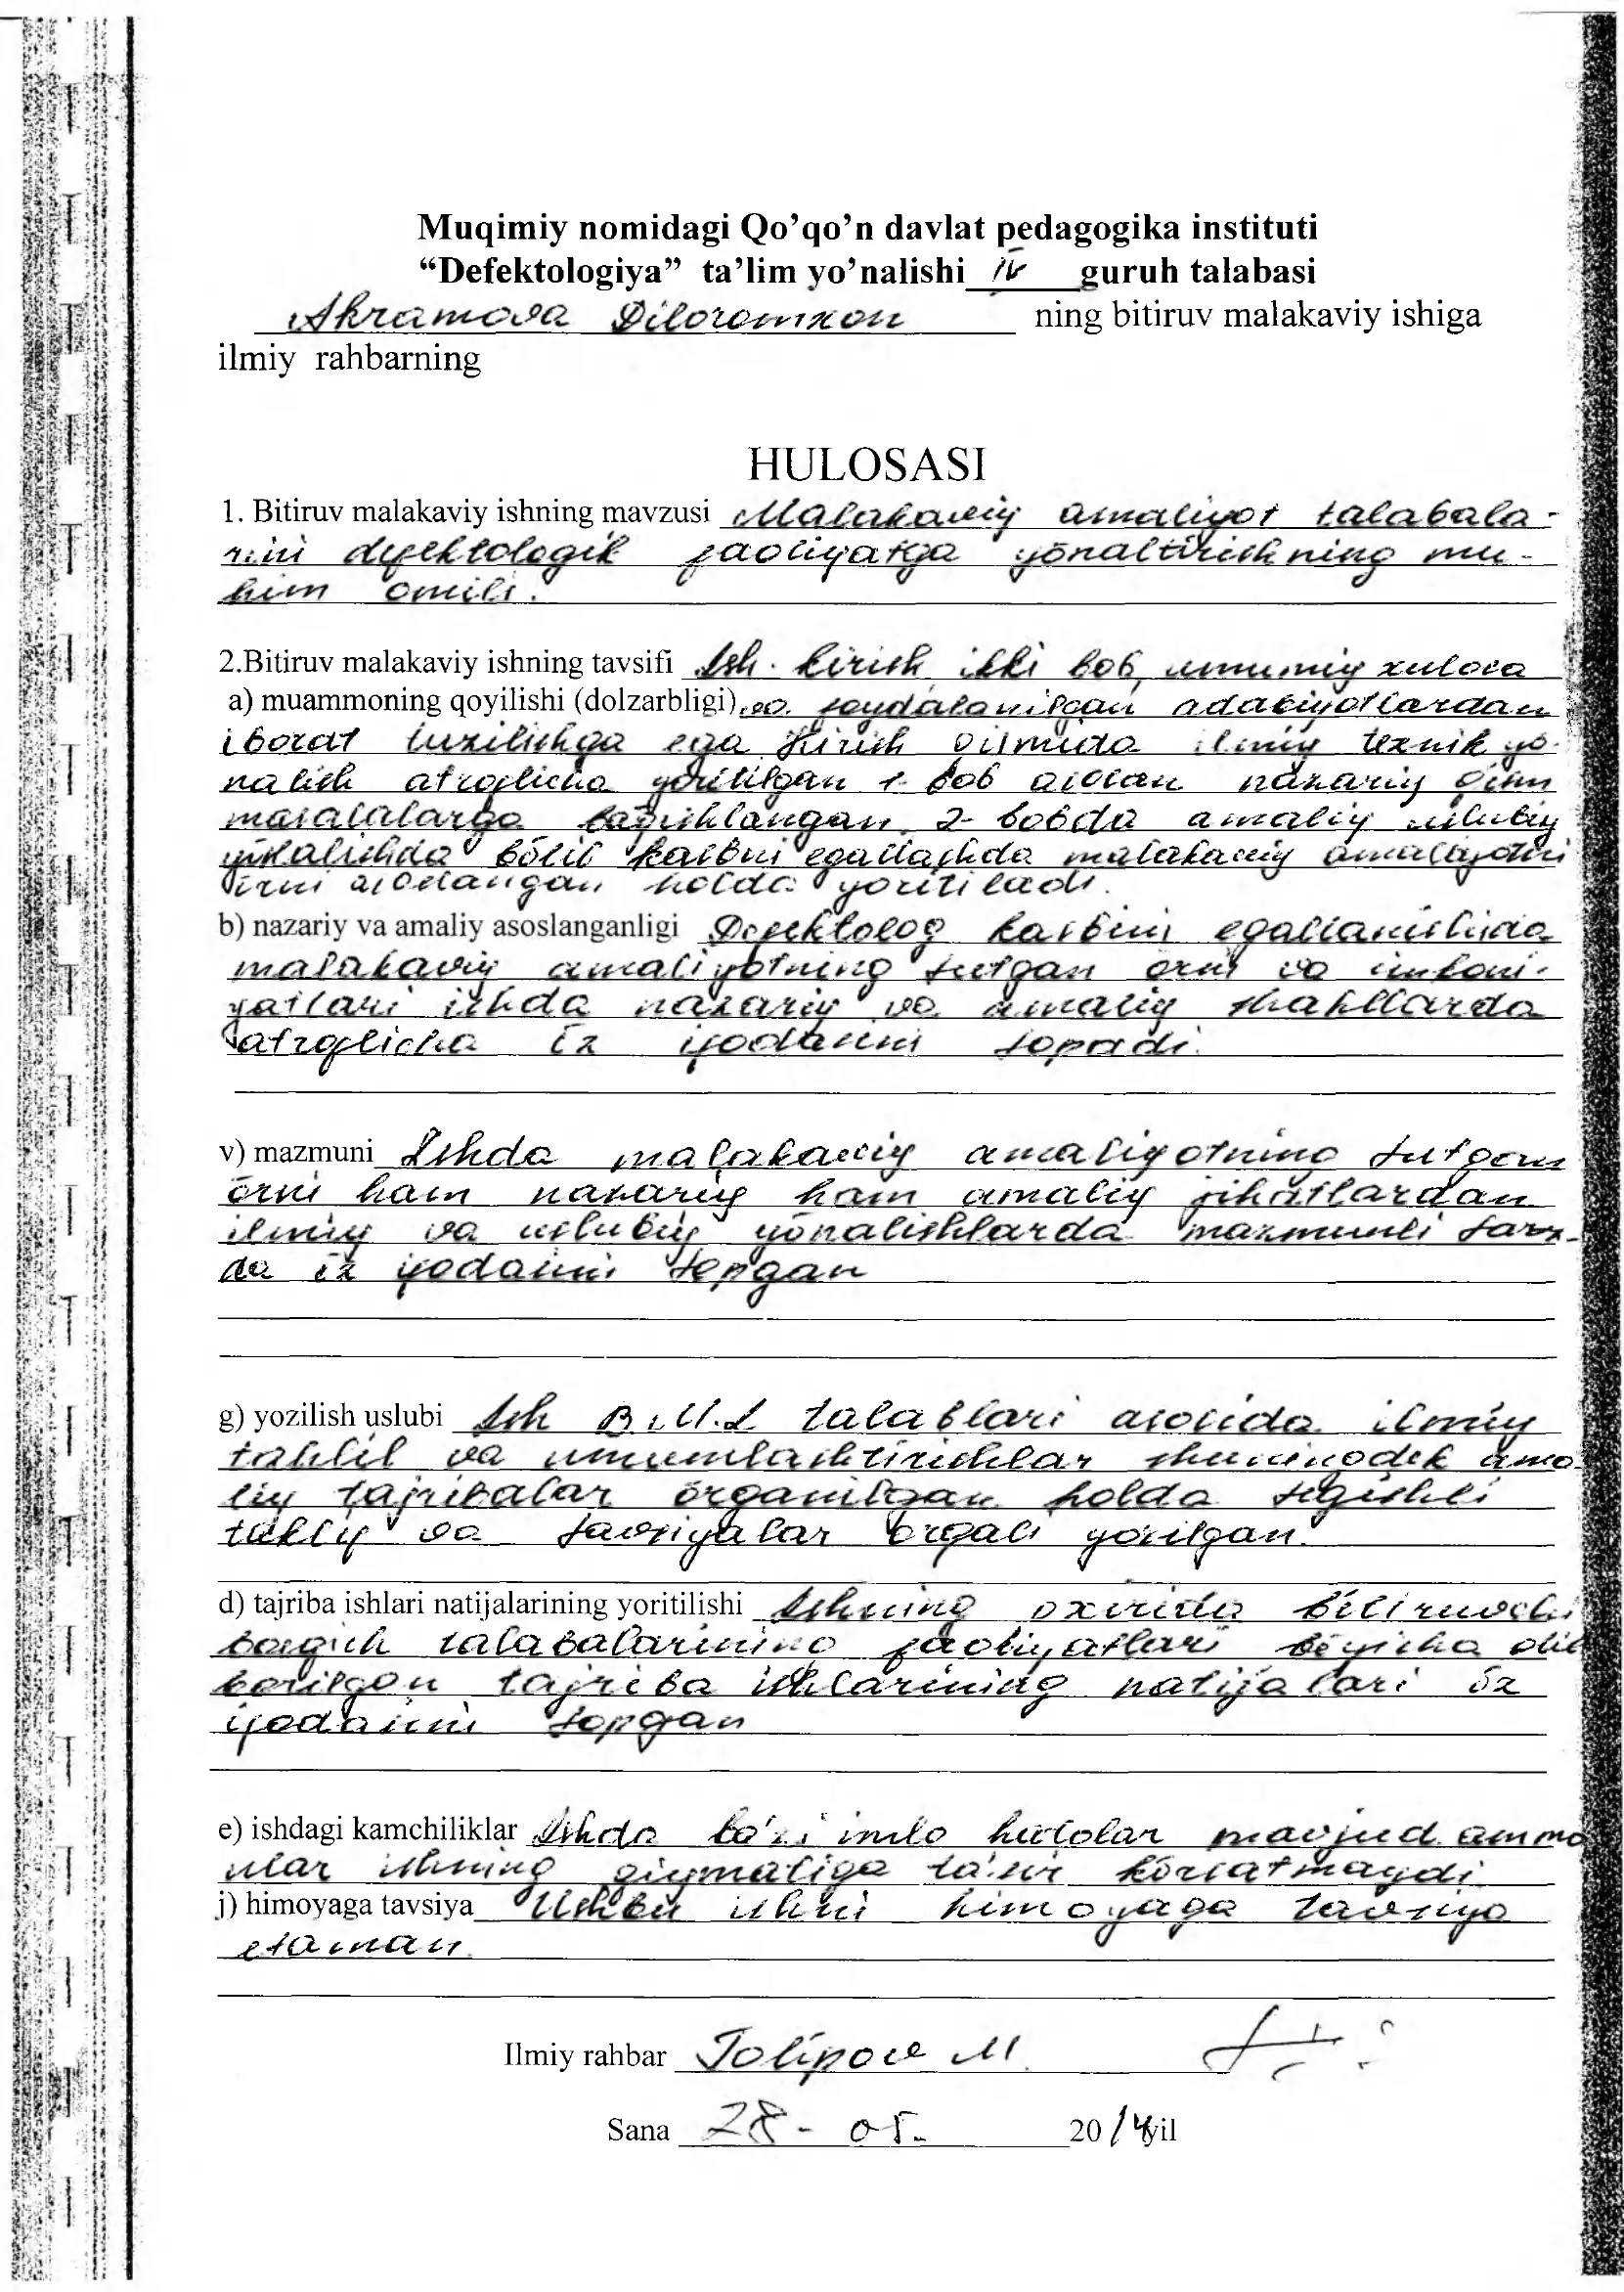 Muqimiy nomidagi Qo’qo’n davlat pedagogika instituti
“Defektologiya” ta’lim yo’nalishi IV guruh talabasi
Akramova Diloromxon ning bitiruv malakaviy ishiga
ilmiy rahbarning
HULOSASI
1. Bitiruv malakaviy ishning mavzusi Malakaviy amaliyot talabala-
rini defektologik faoliyatga yōnaltirishning mu-
him omili.
2.Bitiruv malakaviy ishning tavsifi Ish. kirish ikki bob, umumiy xulosa
a) muammoning qoyilishi (dolzarbligi) va foydalanilgan adabiyotlardan
iborat tuzilishga ega Kirish qismida ilmiy texnik yō-
nalish atroflicha yoritilgan 1-bob asosan nazariy qism
masalalarga bağishlangan. 2-bobda amaliy uslubiy
yōnalishda bōlib kasbni egallashda malakaviy amaliyotni
ōrni asoslangan holda yoritiladi.
b) nazariy va amaliy asoslanganligi Defektolog kasbini egallanishida
malakaviy amaliyotning tutgan ōrni va imkoni-
yatlari ishda nazariy va amaliy shakllarda
atroflicha ōz ifodasini topadi.
v) mazmuni Ishda malakaviy amaliyotning tutgan
ōrni ham nazariy ham amaliy jihatlardan
ilmiy va uslubiy yōnalishlarda mazmunli tarz-
da ōz ifodasini topgan
g) yozilish uslubi Ish B.M.I talablari asosida ilmiy
tahlil va umumlashtirishlar shuningdek ama-
liy tajribalar ōrganilgan holda tegishli
taklif va tavsiyalar ōrqali yorilgan.
d) tajriba ishlari natijalarining yoritilishi Ishning oxirida bitiruvchi
bosqich talabalarining faoliyatlari bōyicha olib
borilgan tajriba ishlarining natijalari ōz
ifodasini topgan
e) ishdagi kamchiliklar Ishda ba'zi imlo hatolar mavjud ammo
ular ishning qiymatiga ta'sir kōrsatmaydi
j) himoyaga tavsiya Ushbu ishni himoyaga tavsiya
etaman.
Ilmiy rahbar Tolipov M.
Sana 28-05. 2014 yil